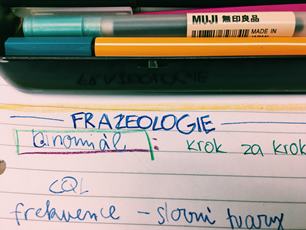 MUJI 無印良品
MADE IN JAPAN
FRAZEOLOGIE
binomiál : krok za krok
CQL
frekvence - slovní tvary